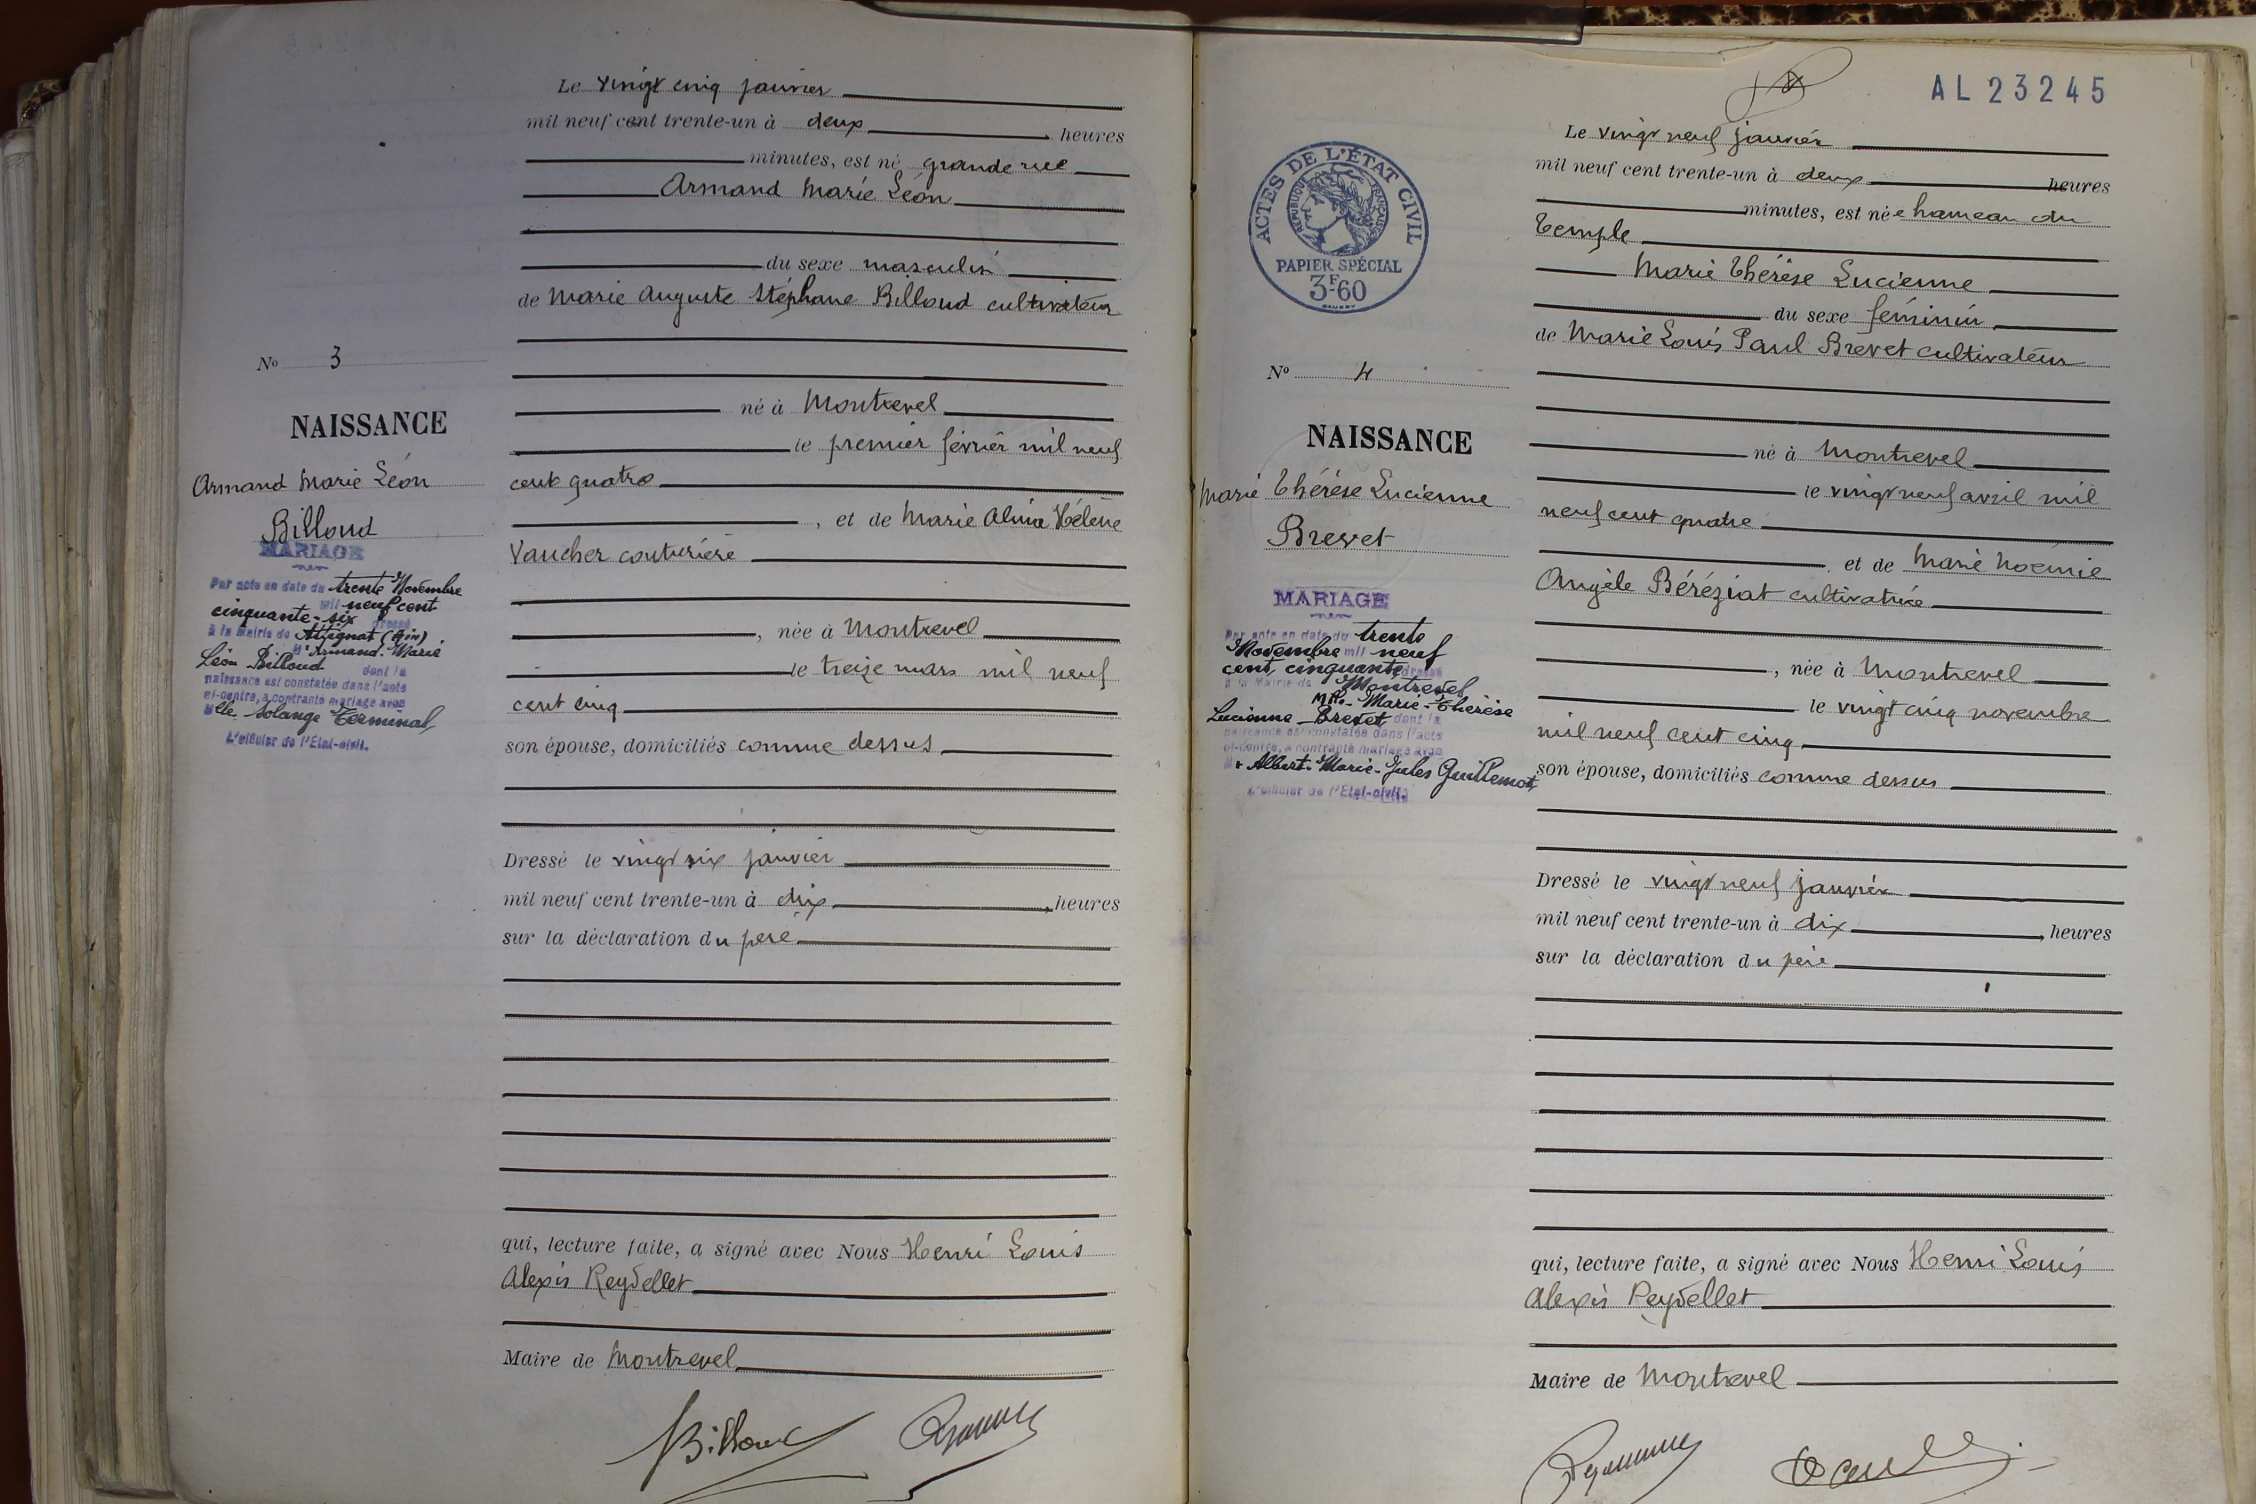 Le vingt cinq janvier
mil neuf cent trente-un à deux heures
minutes, est né grande rue
Armand Marie Léon
du sexe masculin
de Marie Auguste Stéphane Billoud cultivateur
né à Montrevel
le premier février mil neuf
cent quatre
, et de Marie Alma Hélène
Vaucher couturière
, née à Montrevel
le treize mars mil neuf
cent cinq
son épouse, domiciliés comme dessus
Dressé le vingt six janvier
mil neuf cent trente-un à dix heures
sur la déclaration du père
qui, lecture faite, a signé avec Nous Henri Louis
Alexis Reydellet
Maire de Montrevel
Billoud
No 3
NAISSANCE
Armand Marie Léon
Billoud
MARIAGE
Par acte en date du trente Novembre
mil neuf cent
cinquante-six dressé
à la Mairie de Attignat (Ain)
Mr Armand-Marie
Léon Billoud dont la
naissance est constatée dans l'acte
ci-contre, a contracté mariage avec
Mlle Solange Terminal,
L'officier de l'Etat-civil.
AL23245
ACTES DE L'ÉTAT CIVIL
RÉPUBLIQUE FRANÇAISE
PAPIER SPÉCIAL
3F60
Le vingt neuf janvier
mil neuf cent trente-un à deux heures
minutes, est née hameau du
Temple
Marie Thérèse Lucienne
du sexe féminin
de Marie Louis Paul Brevet cultivateur
né à Montrevel
le vingt neuf avril mil
neuf cent quatre
et de Marie Noémie
Angèle Béréziat cultivatrice
, née à Montrevel
le vingt cinq novembre
mil neuf cent cinq
son épouse, domiciliés comme dessus
Dressé le vingt neuf janvier
mil neuf cent trente-un à dix heures
sur la déclaration du père
qui, lecture faite, a signé avec Nous Henri Louis
Alexis Reydellet
Maire de Montrevel
No 4
NAISSANCE
Marie Thérèse Lucienne
Brevet
MARIAGE
Par acte en date du trente
Novembre mil neuf
cent cinquante dressé
à la Mairie de Montrevel
Mlle Marie-Thérèse
Lucienne Brevet dont la
naissance est constatée dans l'acte
ci-contre, a contracté mariage avec
Mr Albert-Marie-Jules Guillemot,
L'officier de l'Etat-civil.